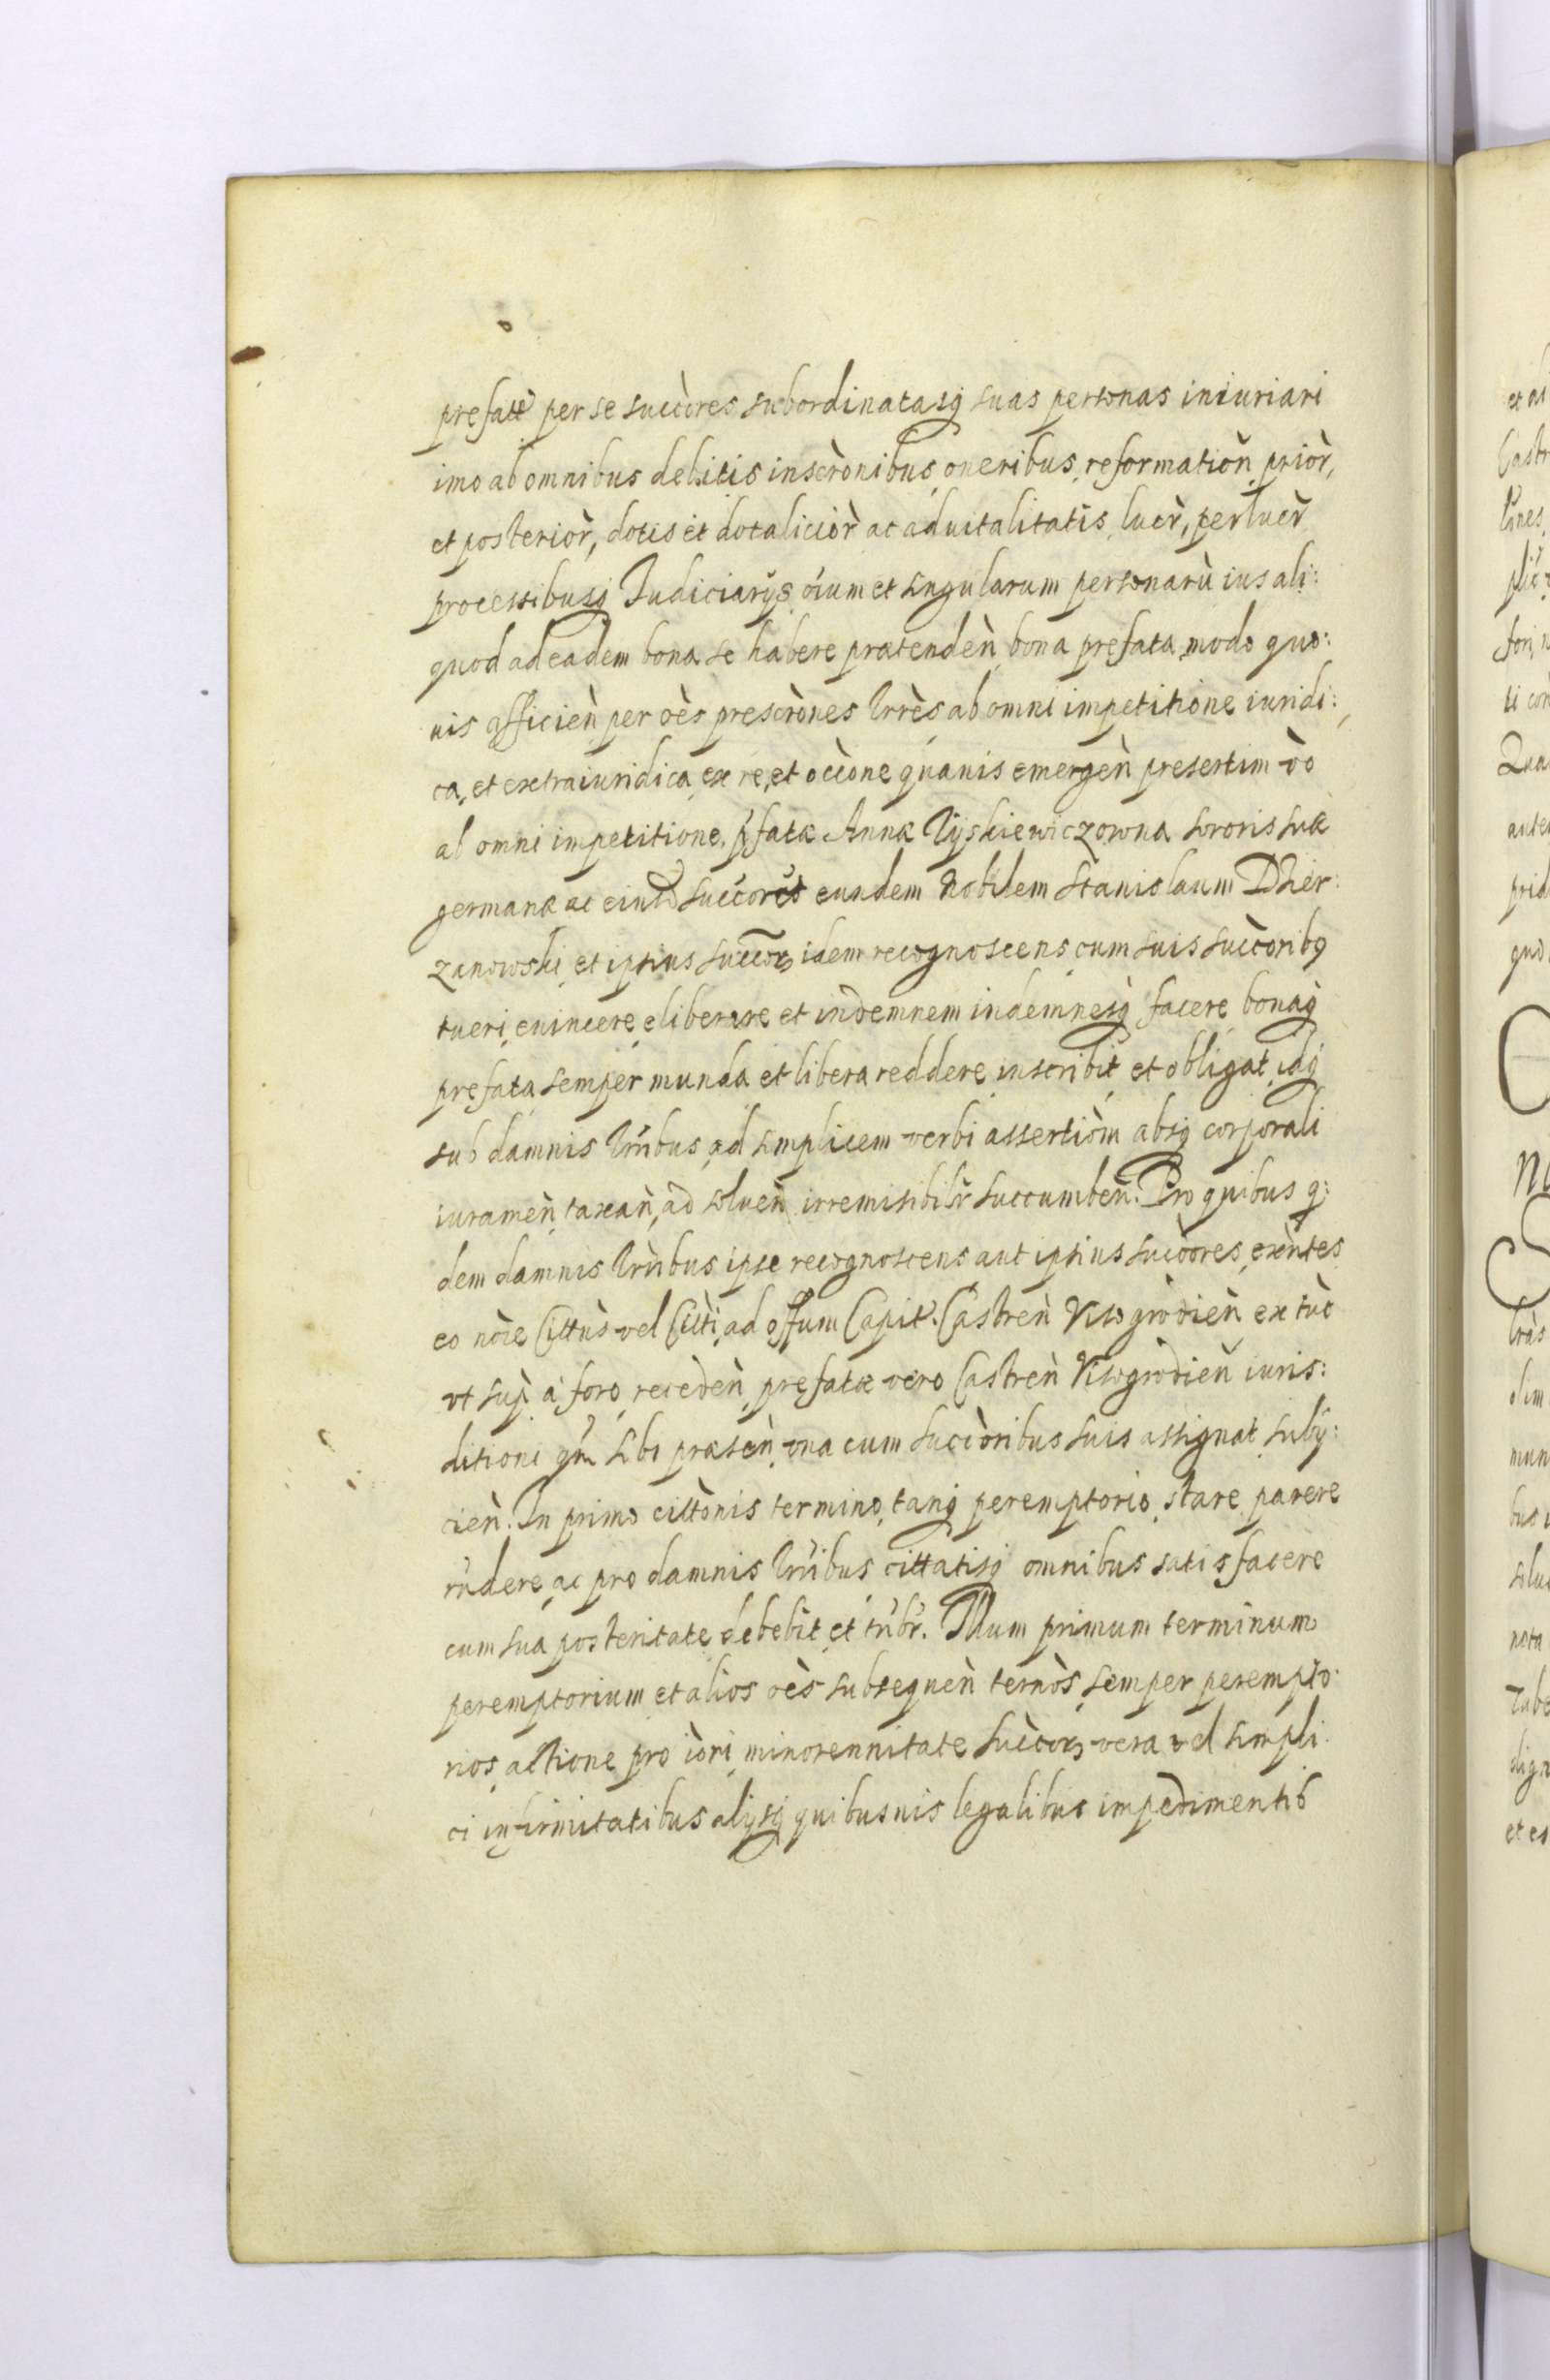 prefatę per se succòres subordinatasq suas personas iniuriari
imo ab omnibus debitis inscrònibus oneribus, reformatioǹ prior̀,
et posterior̀, dotis et dotalicior̀ ac aduitalitatis, lucr̀, perlucr̀
processibusq Judiciarijs oium et singularum personarù ius ali:
quod ad eadem bona se habere prætendeǹ bona prefata modo quo:
uis afficieǹ per oès prescrònes Trrès ab omni impetitione iuridi:
ca, et extraiuridica, ex re, et occòne quauis emergeǹ presertim vò
ab omni impetitione pfatæ Annæ Tÿskiewiczowna sororis suæ
germanæ ac eiusd succòres eundem Nobilem Stanislaum Dzier:
zanowski, et ipsius succor, idem recognoscens cum suis succòribq
tueri, euincere, eliberare et indemnem indemnesq facere, bonaq
prefata semper munda et libera reddere, inscribit et obligat, idq
sub damnis Trribus, ad simplicem verbi assertiòm absq corporali
iurameǹ, taxaǹ, ad solueǹ irremisibilr succumbeǹ. Pro quibus q:
dem damnis Trribus ipse recognoscens aut ipsius succòres, exèntes
eo nòie Cittùs vel Citti, ad offum Capit. Castreǹ Visogrodieǹ ex tùc
vt sup à foro recedeǹ, prefatæ vero Castreǹ Visogrodieǹ iuris:
ditioni qm sibi præseǹ, vna cum succòribus suis assignat subij:
cieǹ. In primo cittònis termino, tanq peremptorio, stare parere
rndere, ac pro damnis Trribus cittatisq omnibus satisfacere
cum sua posteritate debebit et tnbr. Illum primum terminum
peremptorium et alios oès subsequeǹ ternòs, semper perempto:
rios, actione pro iòri, minorennitate succor, vera vel simpli:
ci infirmitatibus alijsq quibusuis legalibus impedimentib